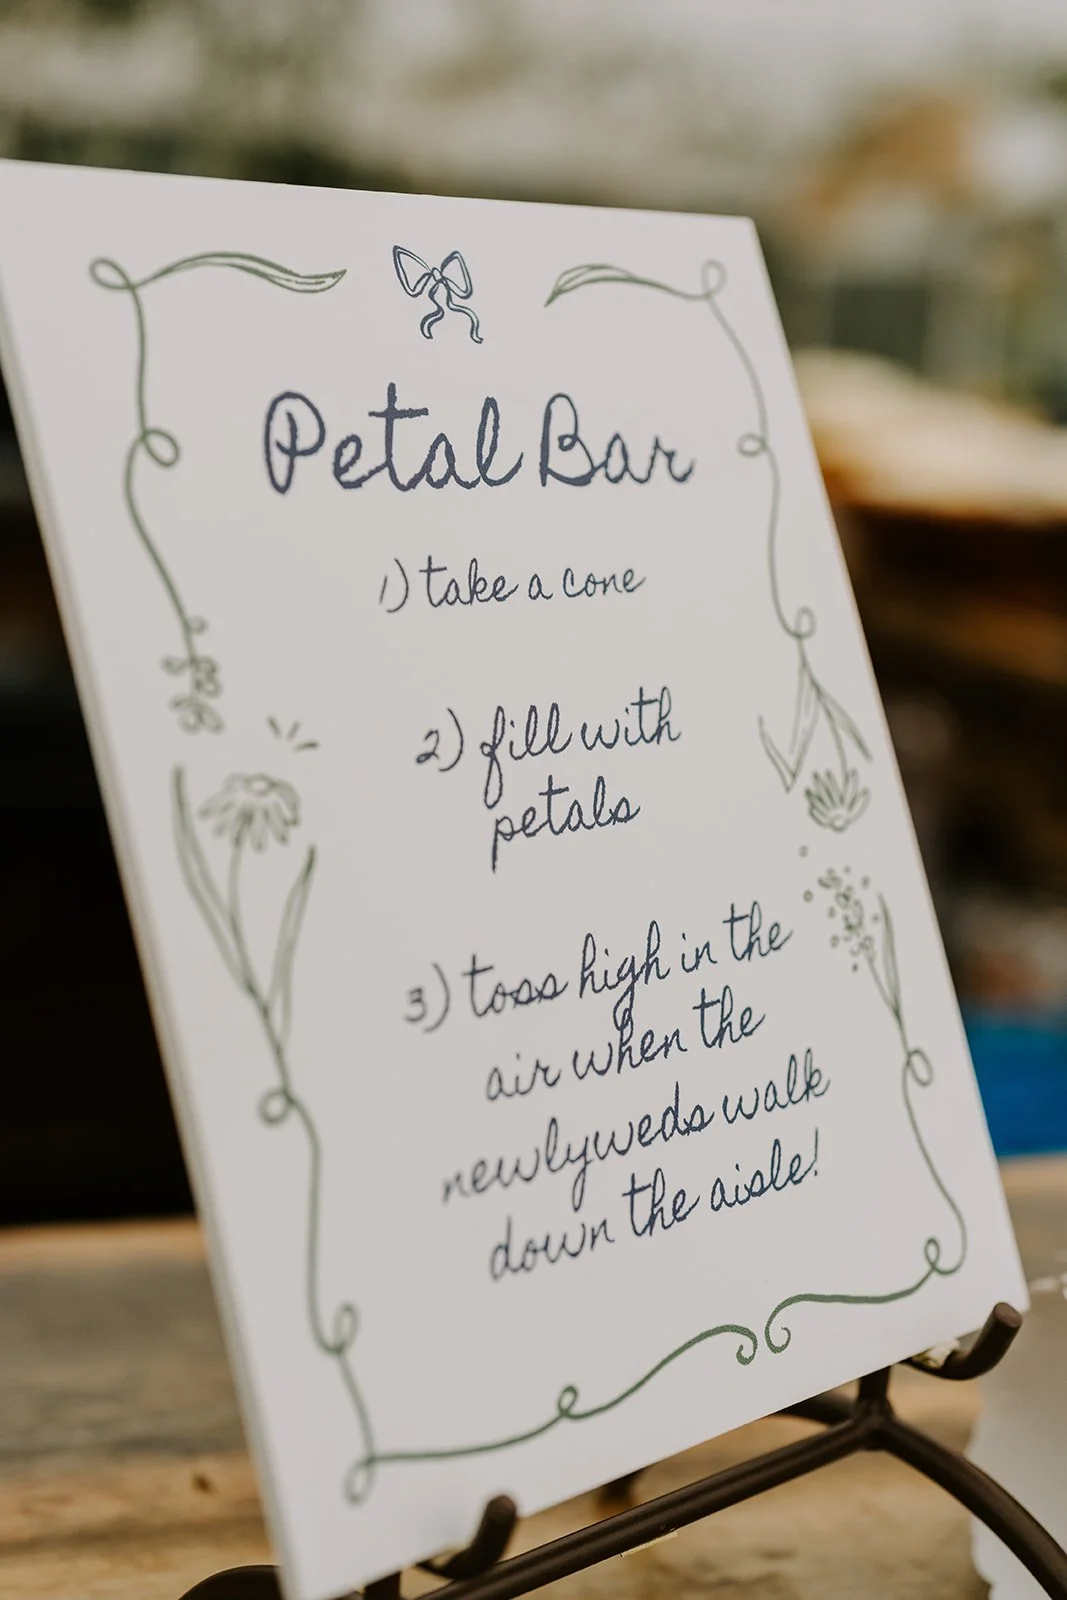 Petal Bar
1) take a cone
2) fill with
petals
3) toss high in the
air when the
newlyweds walk
down the aisle!